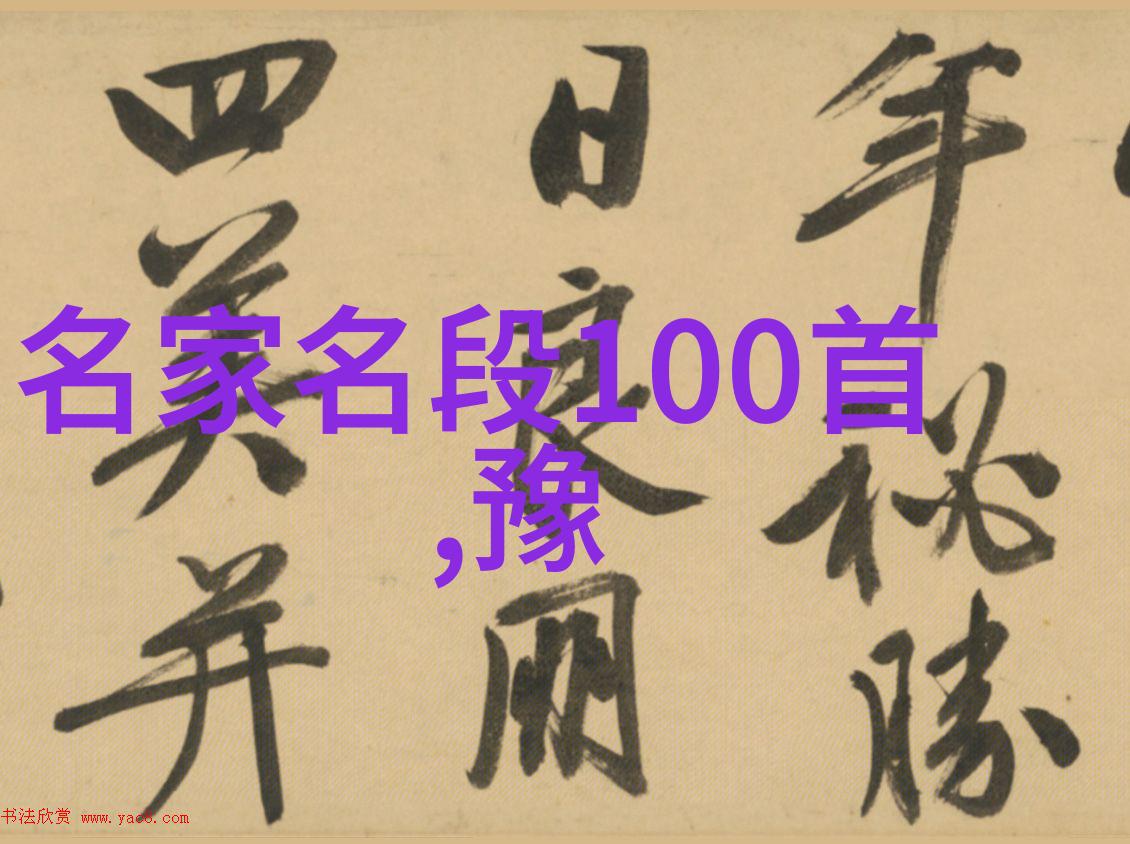 年秘勝
日良
四美并
名家名段100首
,豫
书法欣赏 www.yac8.com